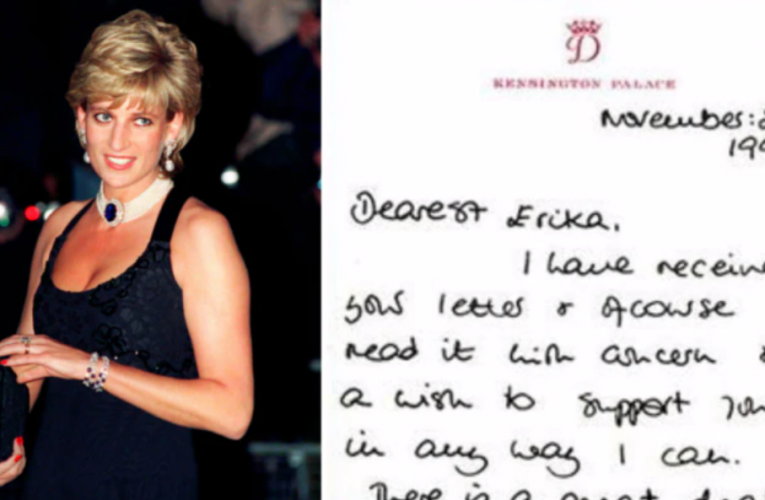 D
KENSINGTON PALACE
November:
199
Dearest Erika,
I have receive
your letter & ofcourse
read it with concern &
a wish to support you
in any way I can.
There is a great deal